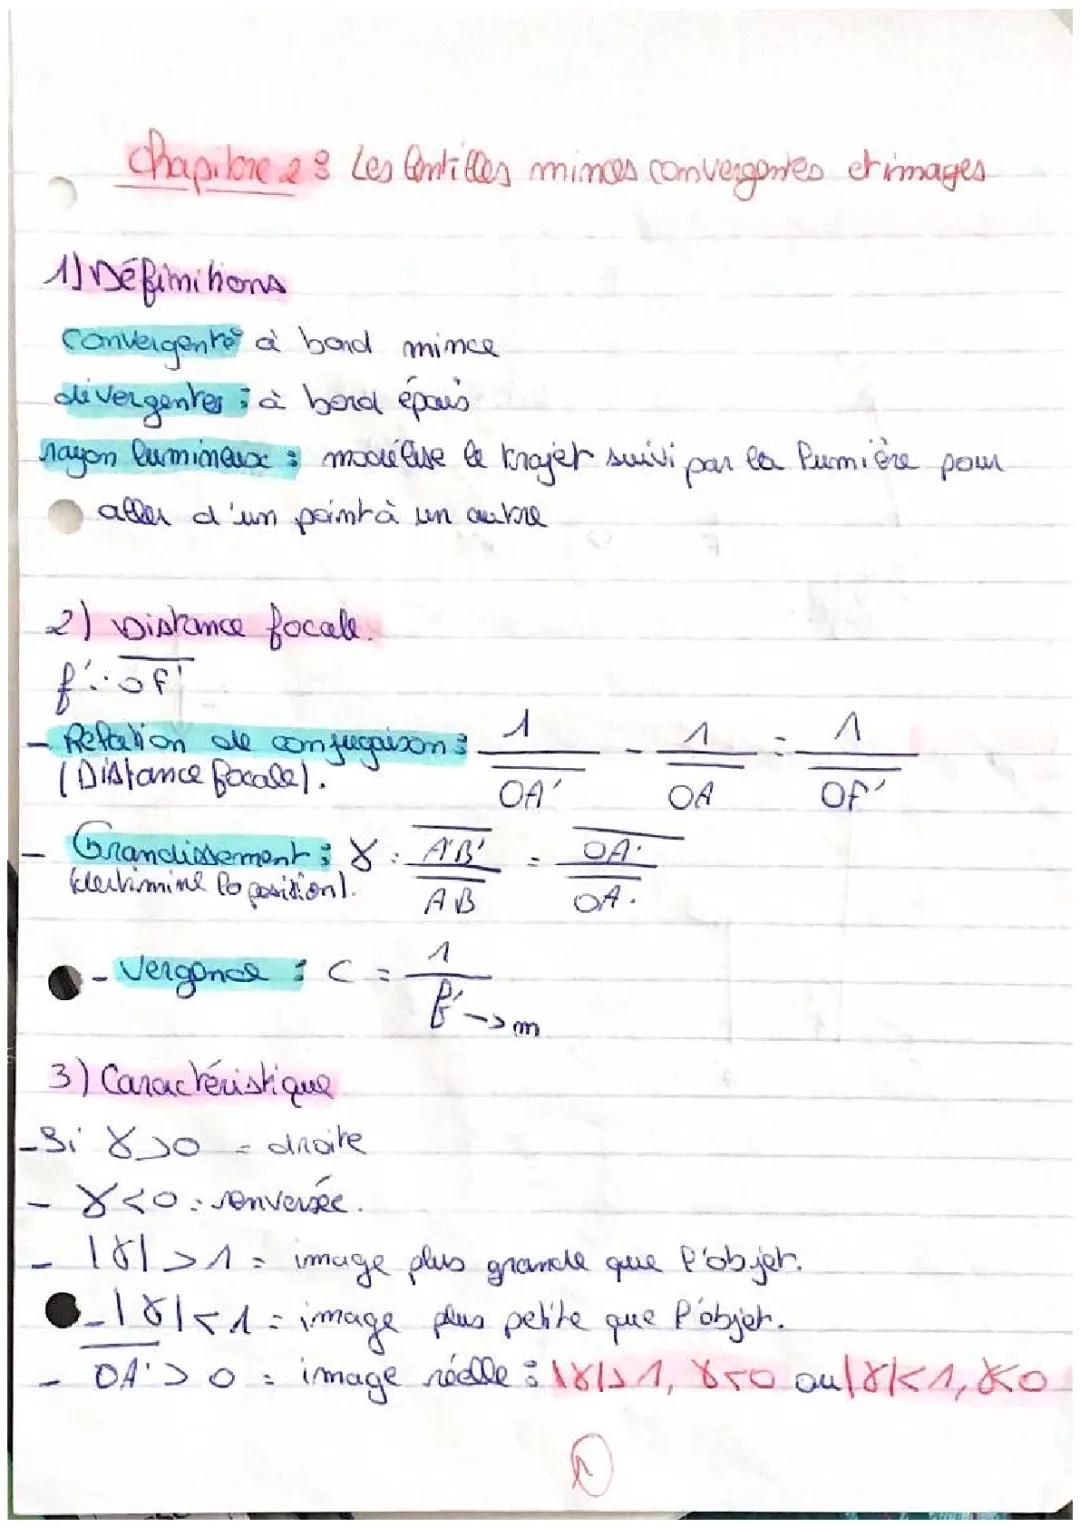 Chapitre 2 : Les lentilles minces convergentes et images
1) Définitions
convergentes à bord mince
divergentes : à bord épais
rayon lumineux : modélise le trajet suivi par la lumière pour
aller d'un point à un autre
2) Distance focale.
f' : \overline{OF'}
- Relation de conjugaison : \frac{1}{\overline{OA'}} - \frac{1}{\overline{OA}} = \frac{1}{\overline{OF'}}
(Distance focale).
- Grandissement : γ : \frac{\overline{A'B'}}{\overline{AB}} = \frac{\overline{OA'}}{\overline{OA}}.
la position).
- Vergence : C = \frac{1}{f' → m}
3) Caractéristique
- Si γ > 0 = droite
- γ < 0 : renversée.
- |γ| > 1 = image plus grande que l'objet.
- |γ| < 1 = image plus petite que l'objet.
- \overline{OA'} > 0 = image réelle : |γ| > 1, γ < 0 ou |γ| < 1, γ < 0
1